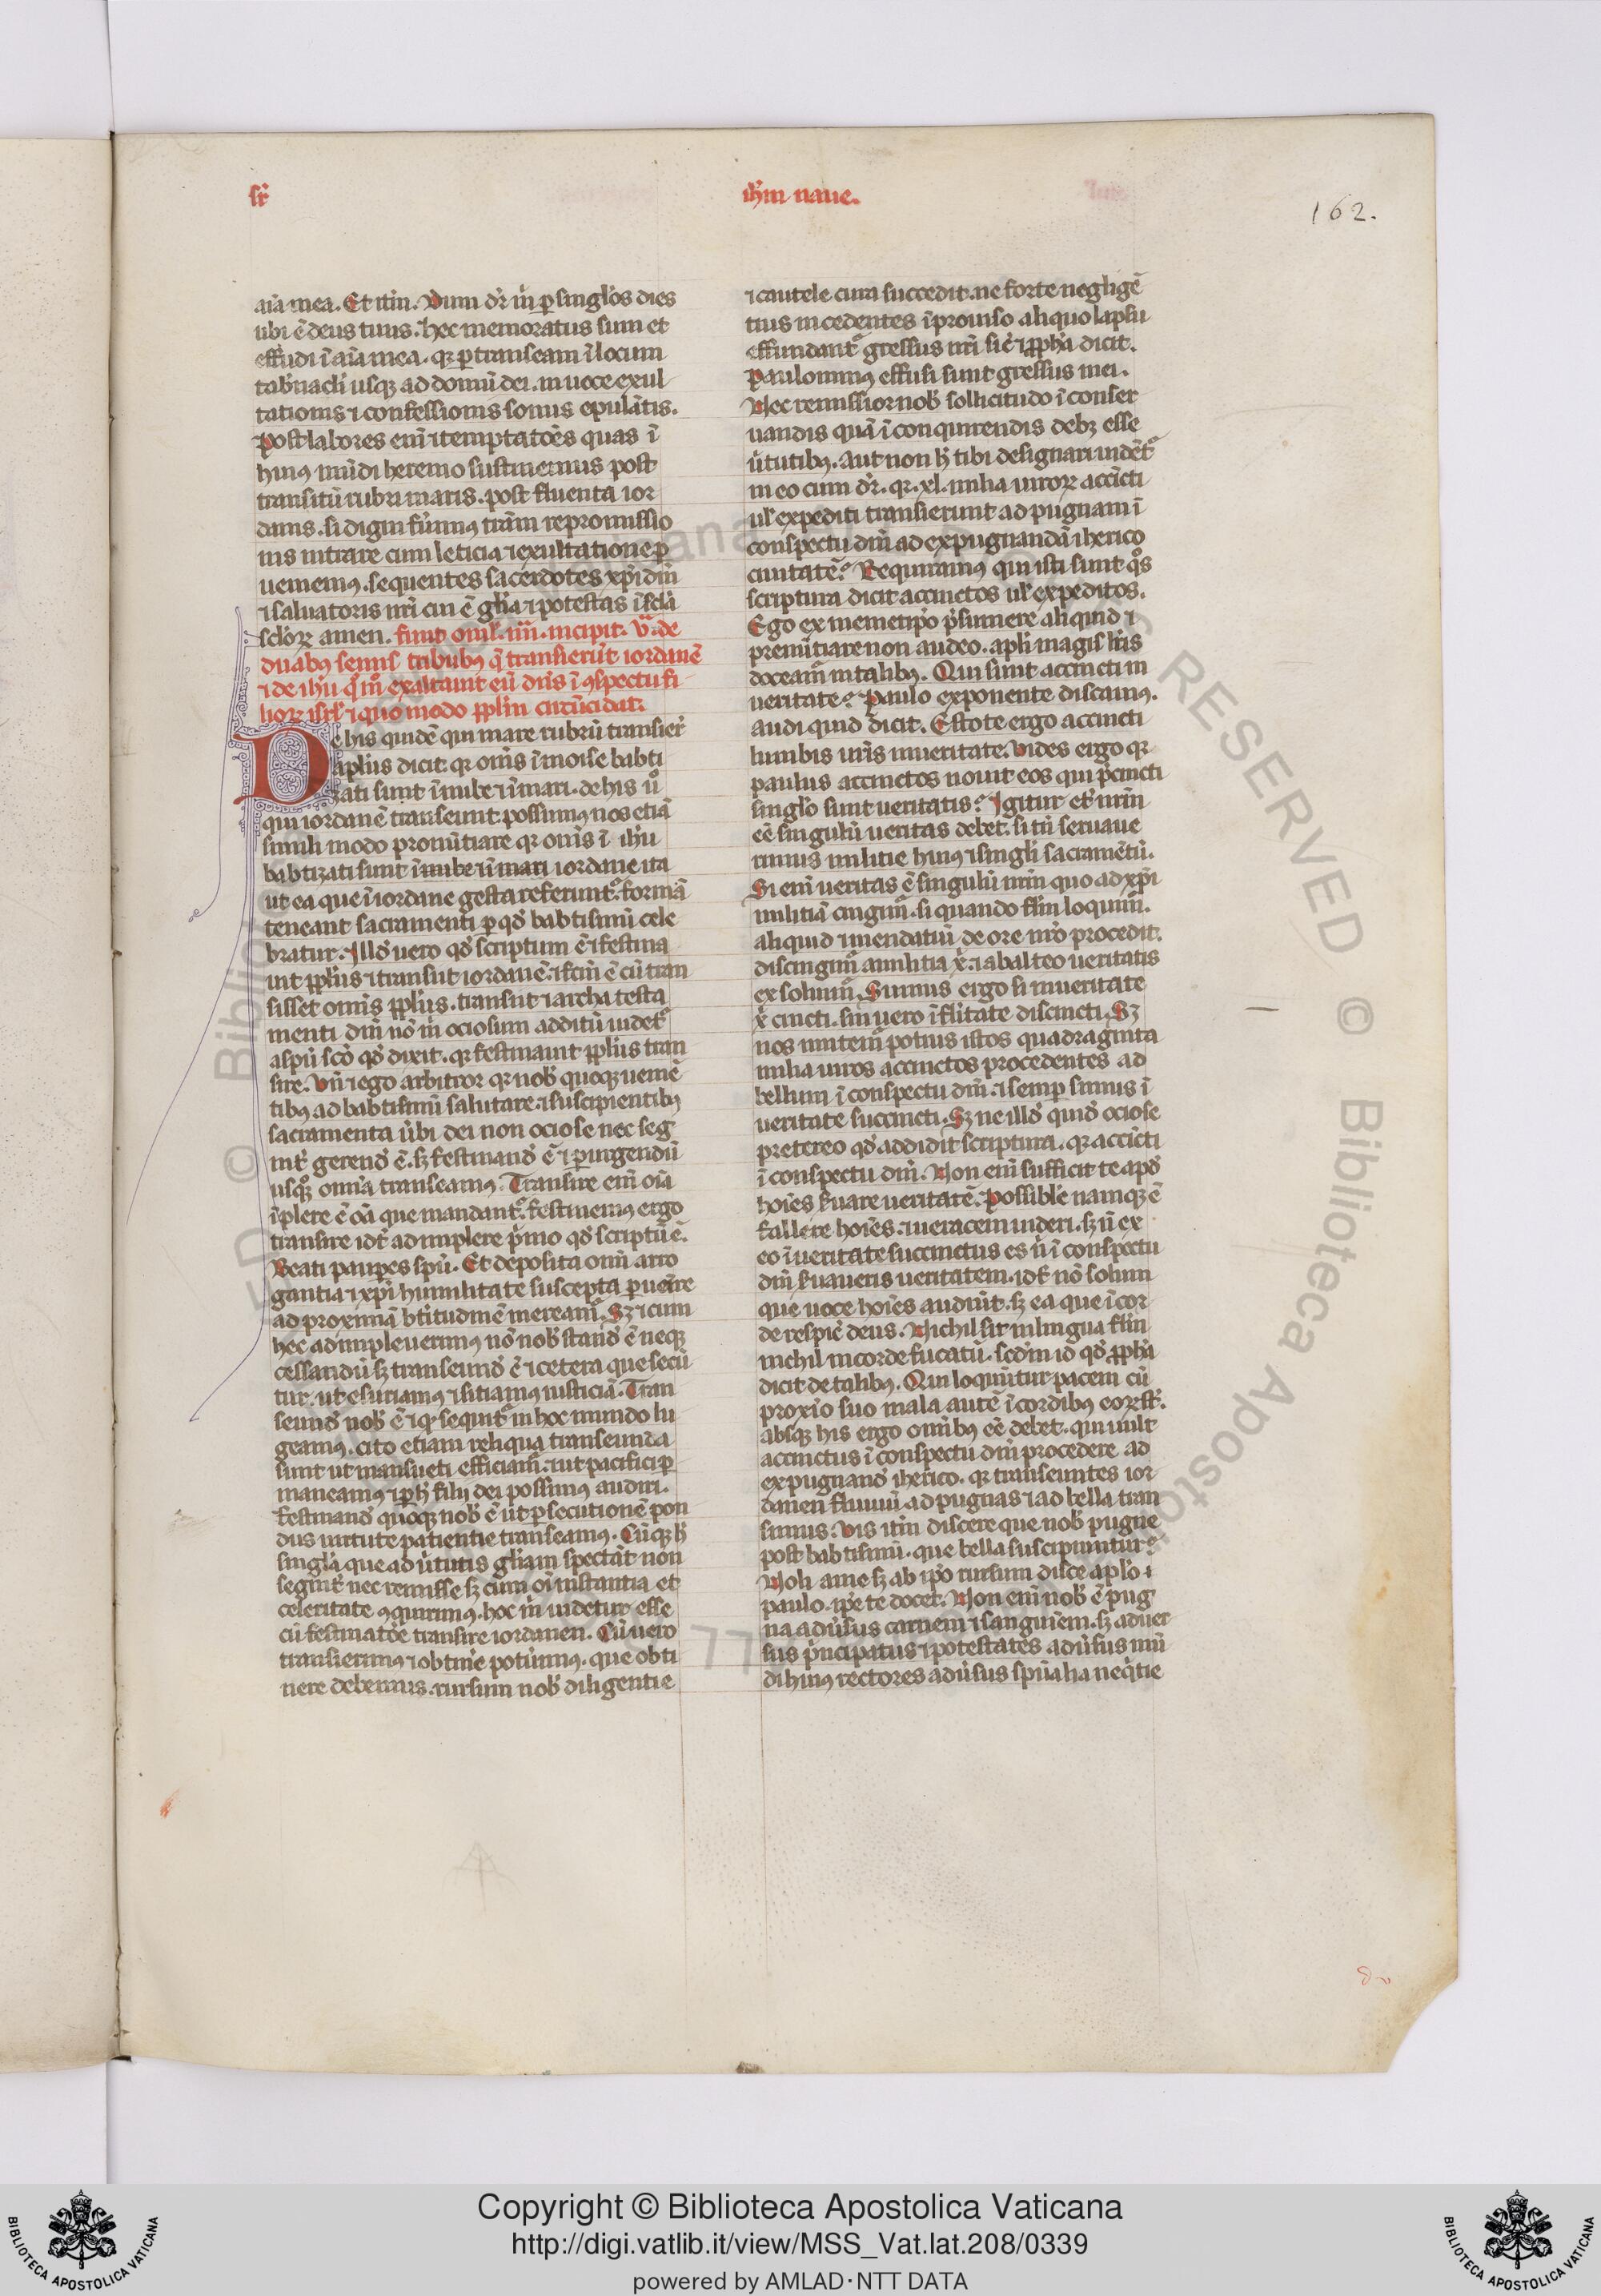 sr̄
ih̄m naue.
162.
aīa mea. Et itm̄. Dum dr̄ m̄ p singlos dies
ubi ē deus tuus. hec memoratus sum et
effudi ī aīa mea. qr ptranseam ī locum
tab̄nacli usqꝫ ad domū dei. in uoce exul
tationis ⁊ confessionis sonus epulātis.
Post labores eni ⁊ temptatōēs quas ī
huiꝰ mūdi heremo sustinemus post
transitū rubri maris. post fluenta ior
danis. si digni fuimꝰ trām repromissio
nis intrare cum leticia ⁊ exultatione p
ueniemꝰ. sequentes sacerdotes xp̄i dn̄i
⁊ saluatoris nr̄i cui ē gl̄ia ⁊ potestas ī scl̄a
scl̄oꝝ amen. finit omel. iiii. incipit. v. de
duabꝰ semis tribubꝰ q̄ transierūt iordanē
⁊ de ih̄u qm̄ exaltauit eū dn̄s ī ꝯspectu fi
lioꝝ isrl ⁊ quo modo ppl̄m circūcidat.
De his quidē qui mare rubrū transier̄
apl̄us dicit qr om̄s ī moise babti
zati sunt ī nube ⁊ ī mari. de his ū
qui iordanē transeunt possumꝰ nos etiā
simili modo pronūtiare qr om̄s ī ih̄u
babtizati sunt ī nube ⁊ ī mari iordane ita
ut ea que ī iordane gesta referunt. formā
teneant sacramenti p qd̄ babtismū cele
bratur. Illd̄ uero qd̄ scriptum ē ⁊ festina
uit ppl̄us ⁊ transiit iordanē. ⁊ fcm̄ ē cū tran
sisset om̄is ppl̄us. transiit ⁊ archa testa
menti dn̄i nō m̄ ociosum additū uidet
a spū sc̄o qd̄ dixit. qr festinauit ppl̄us tran
sire. Un̄ ⁊ ego arbitror qr nob̄ quoqꝫ ueniē
tibꝰ ad babtismū salutare. ⁊ suscipientibꝰ
sacramenta ūbi dei non ociose nec seg
nit̄ gerend̄ ē. sꝫ festinand̄ ē ⁊ pingendū
usqꝫ omnia transeamꝰ. Transire eni oīa
īplere ē oā que mandant. festinemꝰ ergo
transire idt̄ adimplere p̄mo qd̄ scriptū ē.
Beati paupes spū. Et deposita omi arro
gantia ⁊ xp̄i humilitate suscepta puenire
ad proximā btitudinē mereamr̄. Sꝫ ⁊ cum
hec adimpleuerimus nō nob̄ stand̄ ē neqꝫ
cessandū sꝫ transeund̄ ē ⁊ cetera que secū
tur. ut esuriamꝰ ⁊ sitiamꝰ iusticiā. Tran
seund̄ nob̄ ē ⁊ qd̄ sequit̄ in hoc mundo lu
geamꝰ. cito etiam reliqua transeunda
sunt ut mansueti efficiamr̄. ⁊ ut pacifici p
maneamꝰ ⁊ p h̄ filij dei possimus audiri.
Festinand̄ quoqꝫ nob̄ ē ut psecutionē pon
dus uirtute patientie transeamꝰ. Cūqꝫ h̄
singla que ad ūtutis gl̄iam spectāt non
segnit̄ nec remisse sꝫ cum oi instantia et
celeritate ꝯquirimꝰ. hoc m̄ uidetur esse
cū festinatōe transire iordanen. Cū uero
transierimꝰ ⁊ obtinē potūimꝰ. que obti
nere debemus. rursum nob̄ diligentie
⁊ cautele cura succedit. ne forte negligē
tius incedentes īprouiso aliquo lapsu
effundant̄ gressus nr̄i sic̄ ⁊ ppha dicit.
Paulominꝰ effusi sunt gressus mei.
Nec remissior nob̄ sollicitudo ī conser
uandis quā ī conquirendis debꝫ esse
ūtutibꝰ. aut non h̄ tibi designari uidēt̄
in eo cum dr̄. qr. xl. milia uiroꝝ accīcti
ul̄ expediti transierunt ad pugnam ī
conspectu dn̄i ad expugnandā iherico
ciuitatē? Requiramꝰ qui isti sunt qos
scriptura dicit accinctos ul̄ expeditos.
Ego ex memetip̄o p̄sumere aliquid ⁊
prenūtiare non audeo. apli magis lrīs
doceamr̄ in talibꝰ. Qui sunt accincti in
ueritate? Paulo exponente discamꝰ.
audi quid dicit. Estote ergo accincti
lumbis ur̄is in ueritate. Uides ergo qr
paulus accinctos nouit eos qui p̄cincti
singlo sunt ueritatis? Igitur et nr̄m
eē singulū ueritas debet. si tn̄ seruaue
rimus militie huiꝰ ⁊ singli sacramētū.
Si eni ueritas ē singulū nr̄m quo ad xp̄i
militiā cingimr̄. si quando flm̄ loquimr̄.
aliquid ⁊ mendatiū de ore nr̄o procedit.
discingimr̄ a militia x̄. ⁊ a balteo ueritatis
exsoluimr̄. Simus ergo si in ueritate
x̄ cincti. sin uero ī flitate discincti. Sꝫ
nos imitemr̄ potius istos quadraginta
milia uiros accinctos procedentes ad
bellum ī conspectu dn̄i. ⁊ semp simus ī
ueritate succincti. Sꝫ ne illd̄ quid̄ ociose
pretereo qd̄ addidit scriptura. qr accīcti
ī conspectu dn̄i. Non eni sufficit te apd̄
hoīes s̄uare ueritatē. Possibile namqꝫ ē
fallere hoīes. ⁊ ueracem uideri. sꝫ n̄ ex
eo ī ueritate succinctus es n̄ ī conspectu
dn̄i s̄uaueris ueritatem. idt̄ nō solum
que uoce hoīes audiūt. sꝫ ea que ī cor
de respic̄ deus. Nichil sit in lingua flm̄
nichil in corde fucatū. scdm id qd̄ ppha
dicit de talibꝰ. Qui loquūtur pacem cū
proxīo suo mala autē ī cordibꝰ eoꝝ st̄.
absqꝫ his ergo omibꝰ eē debet. qui uult
accinctus ī conspectu dn̄i procedere ad
expugnand̄ iherico. qr transeuntes ior
danen fluuiū. ad pugnas ⁊ ad bella tran
simus. Uis itm̄ discere que nob̄ pugne
post babtismū. que bella suscipiuntur?
Noli a me sꝫ ab ip̄o rursum disce aplo
paulo. ip̄e te docet. Non eni nob̄ ē pug
na adūsus carnem ⁊ sanguinem. sꝫ aduer
sus p̄ncipatus ⁊ potestates adūsus mū
di huiꝰ rectores adūsus spūalia neq̄tie
Copyright © Biblioteca Apostolica Vaticana
http://digi.vatlib.it/view/MSS_Vat.lat.208/0339
powered by AMLAD·NTT DATA
BIBLIOTECA APOSTOLICA VATICANA
BIBLIOTECA APOSTOLICA VATICANA